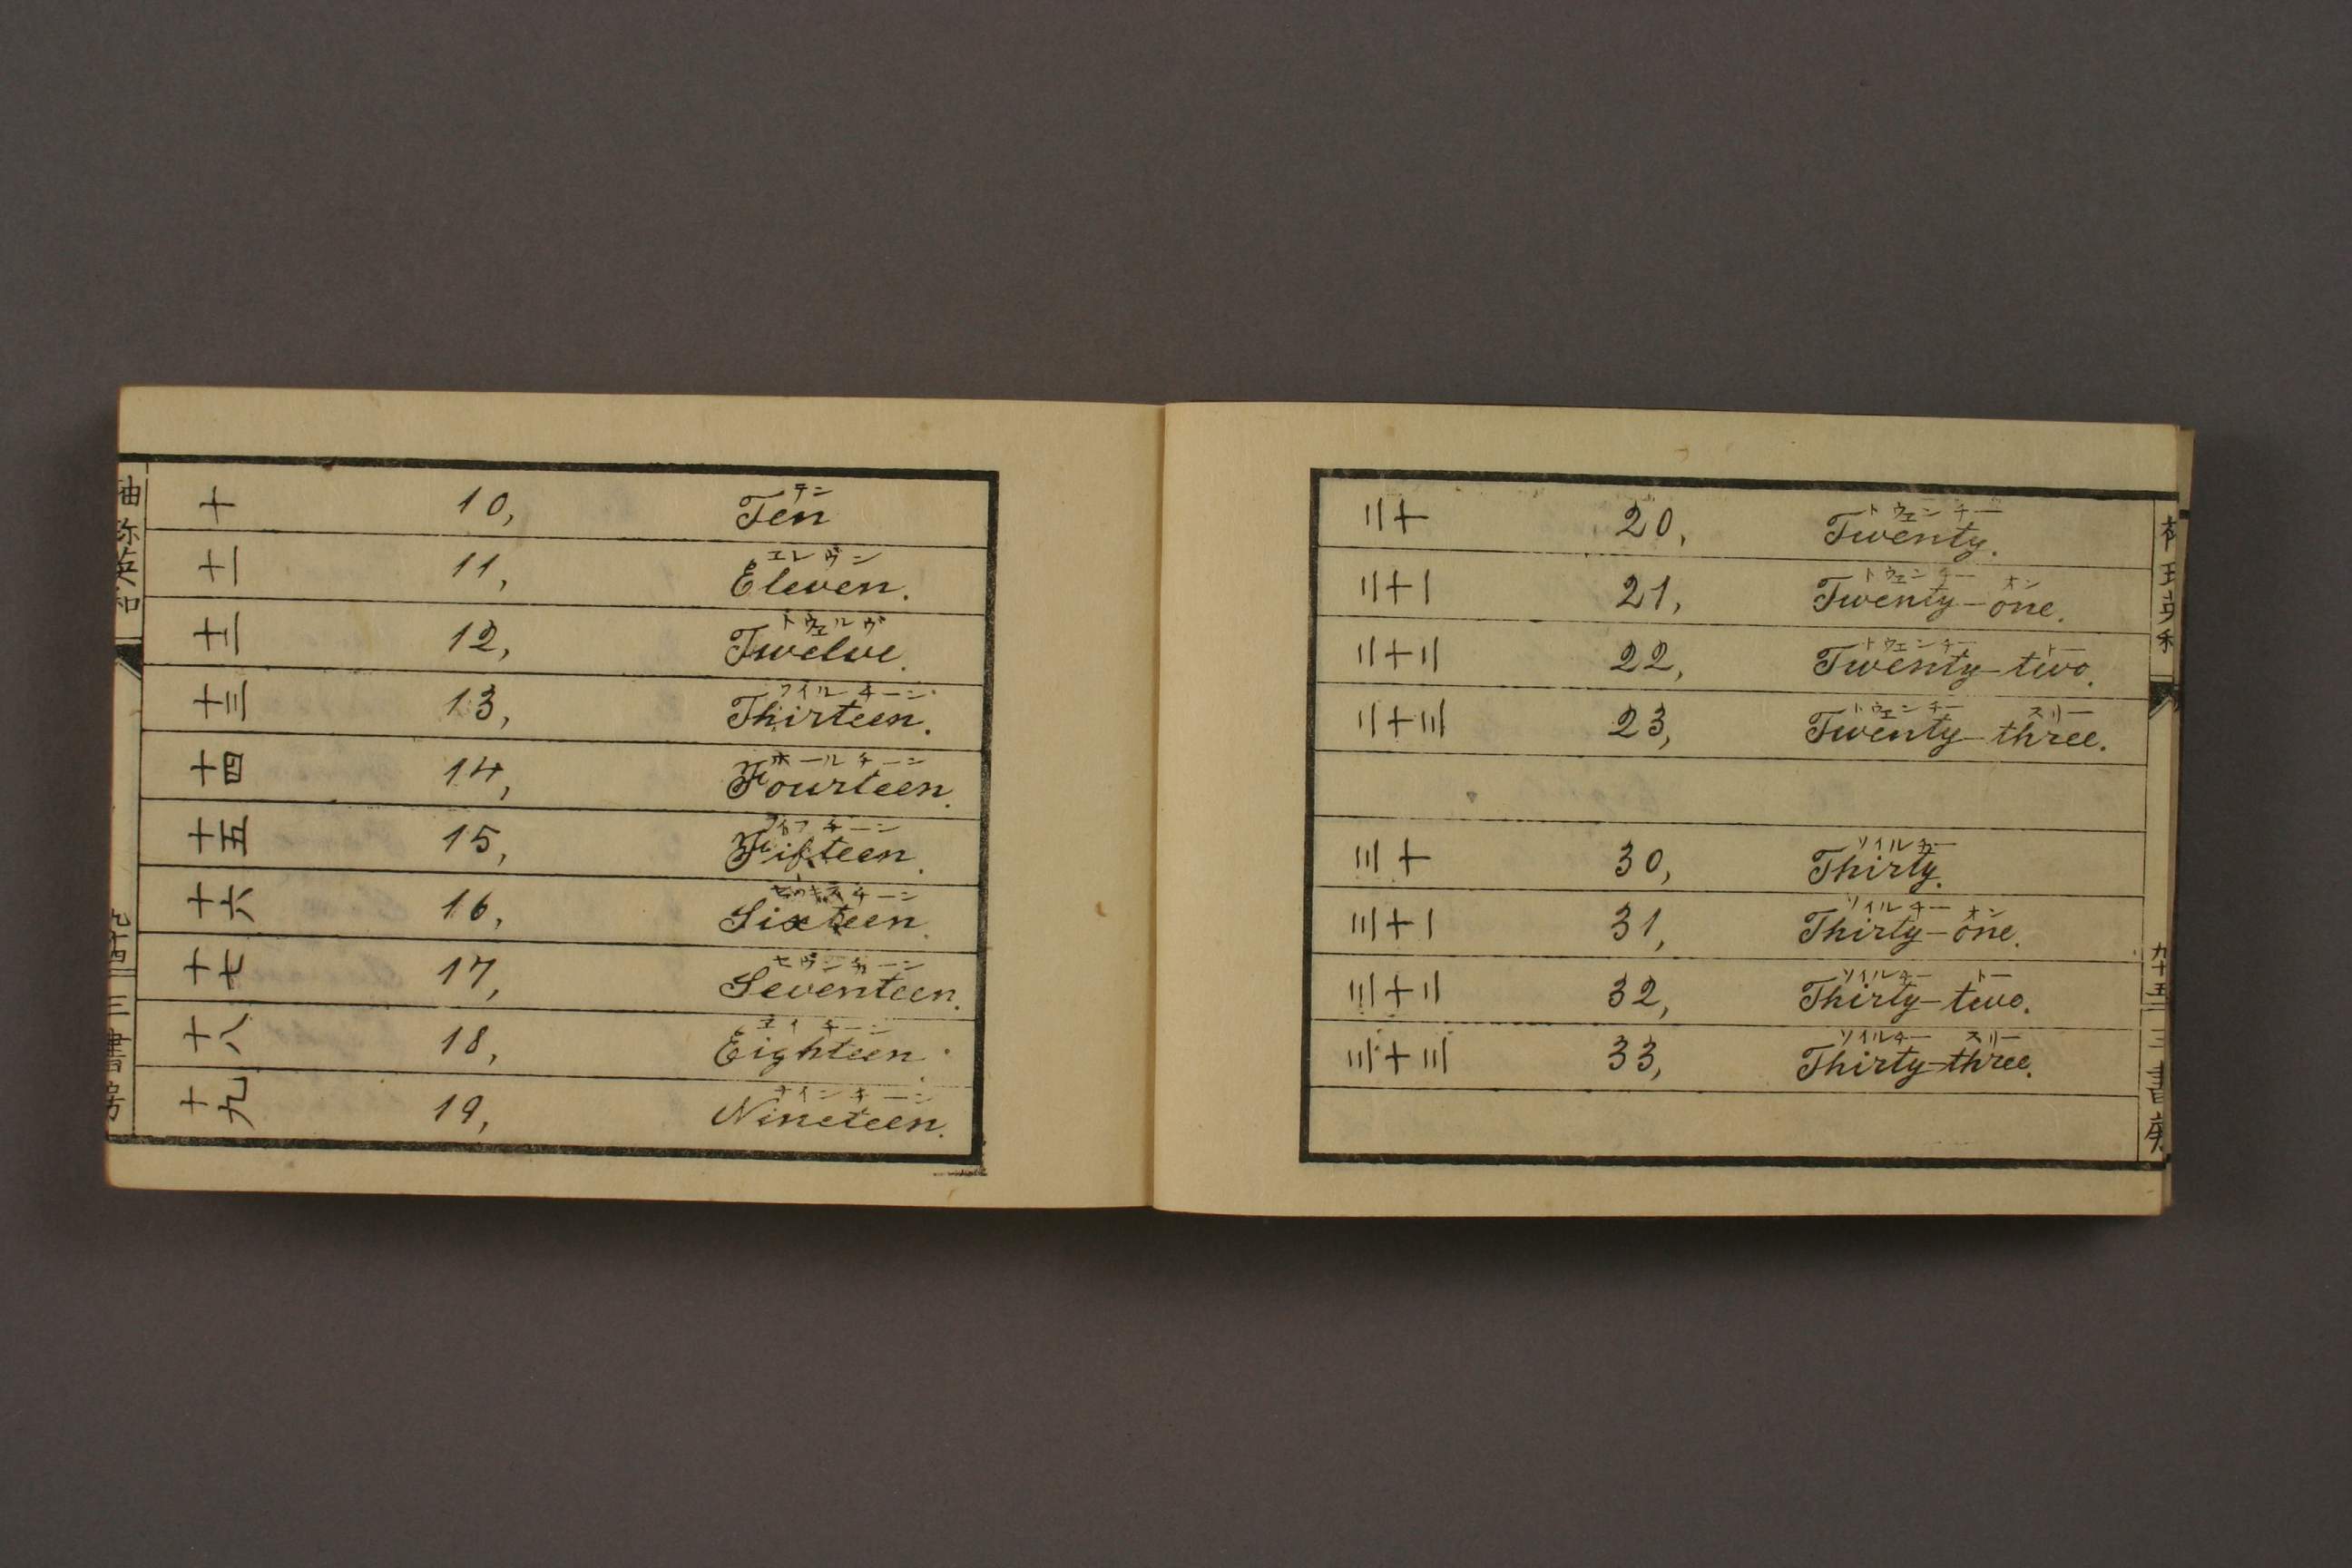 十 10, テン Ten
十一 11, エレヴン Eleven.
十二 12, トウェルヴ Twelve.
十三 13, ツイルチーン Thirteen.
十四 14, ホールチーン Fourteen.
十五 15, フィフチーン Fifteen.
十六 16, チーン Sixteen.
十七 17, セヴンチーン Seventeen.
十八 18, エイチーン Eighteen.
十九 19, ナインチーン Nineteen.
英和
三書房
二十 20, トウェンチー Twenty.
二十一 21, トウェンチー オン Twenty-one.
二十二 22, トウェンチー トー Twenty-two.
二十三 23, トウェンチー スリー Twenty-three.
三十 30, ソイルチー Thirty.
三十一 31, ソイルチー オン Thirty-one.
三十二 32, ソイルチー トー Thirty-two.
三十三 33, ソイルチー スリー Thirty-three.
九十五